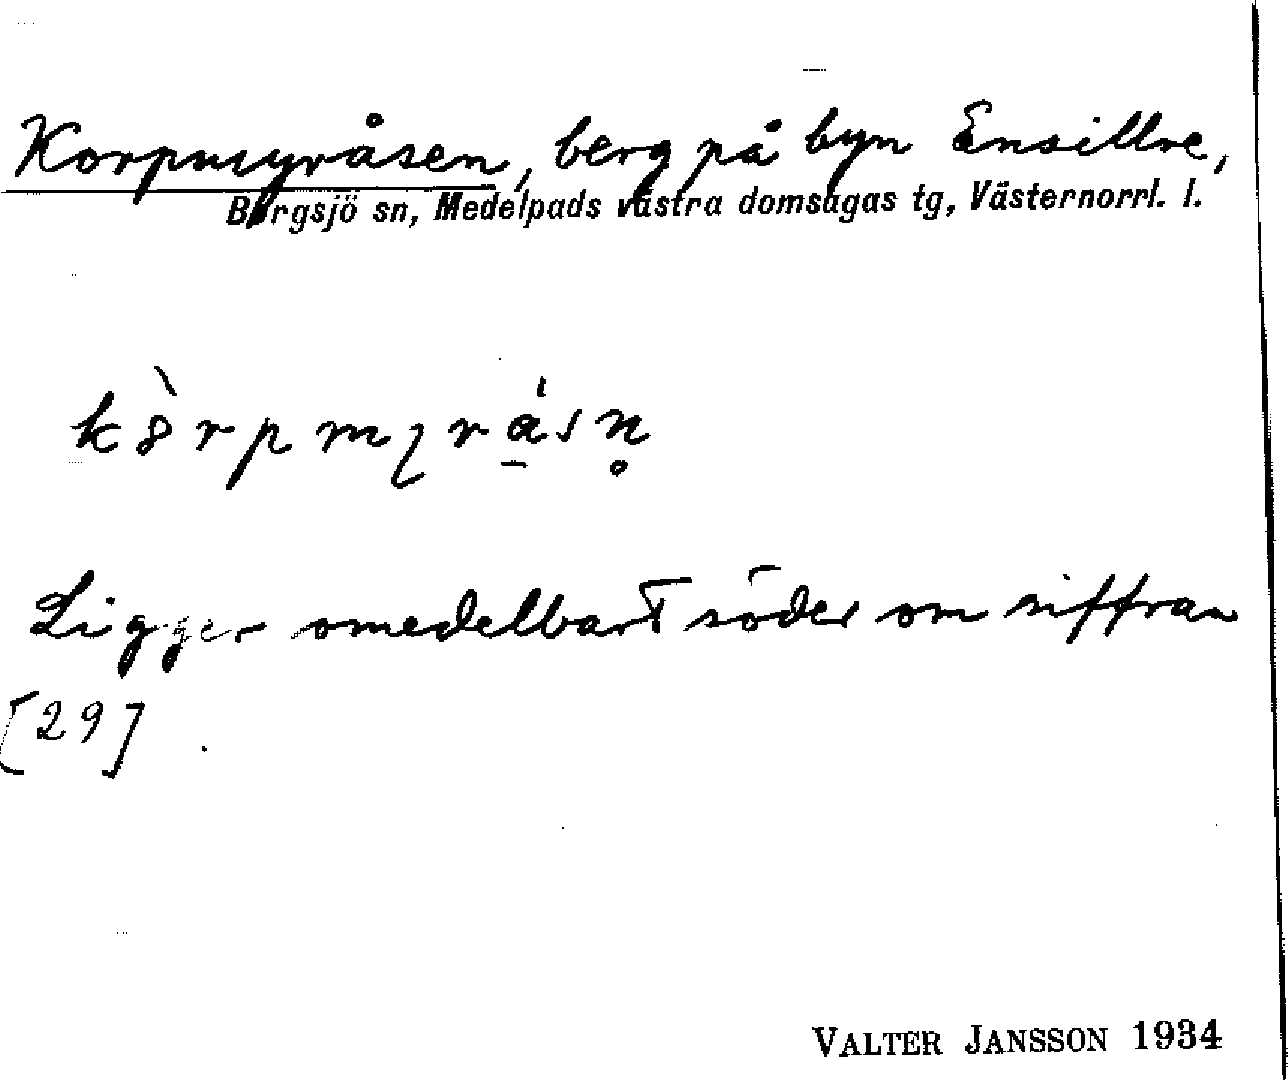 Korpmyråsen, berg på byn Ensillre,
Borgsjö sn, Medelpads västra domsagas tg, Västernorrl. l.
Ligger omedelbart söder om siffran
[29].
VALTER JANSSON 1934